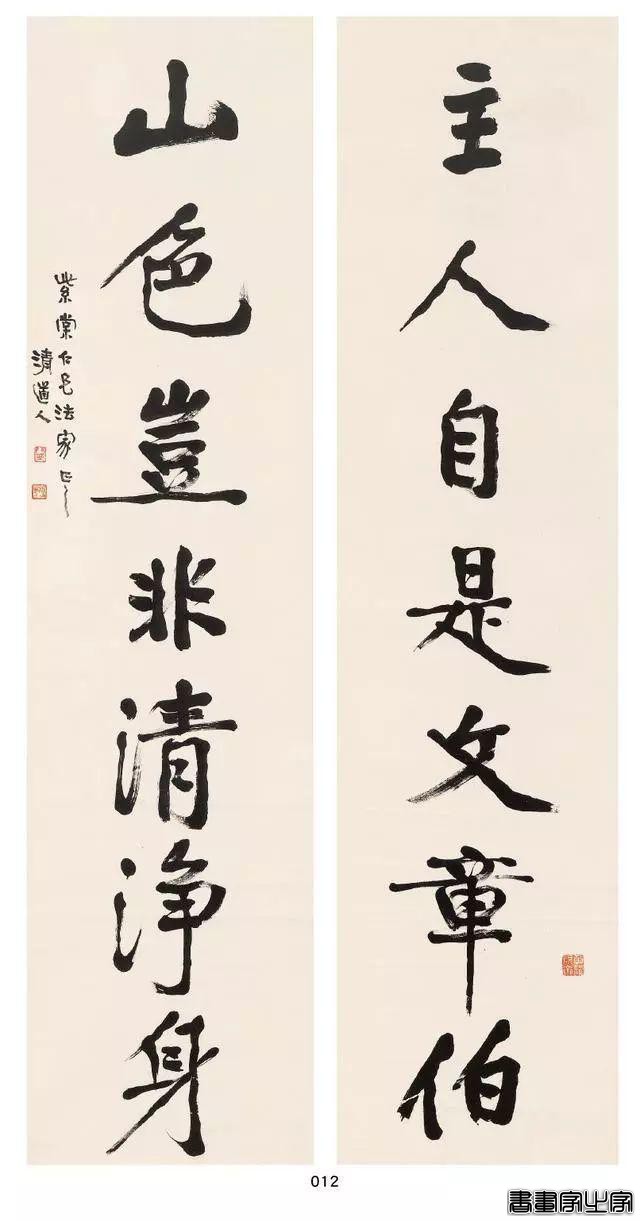 主人自是文章伯
山色豈非清淨身
紫棠仁兄法家正之
清道人
012
書畫家之家